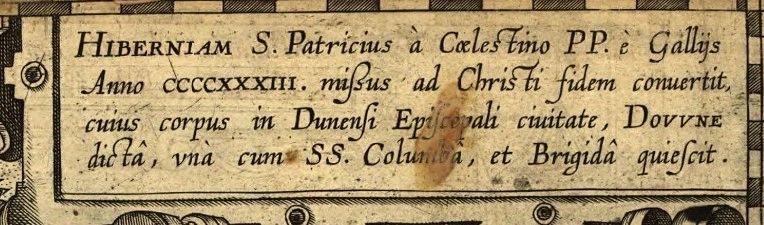 HIBERNIAM S. Patricius à Cœlestino PP. è Gallijs
Anno CCCCXXXIII. mißus ad Christi fidem conuertit,
cuius corpus in Dunenſi Epiſcopali ciuitate, DOVVNE
dictâ, vnà cum SS. Columbâ, et Brigidâ quieſcit.